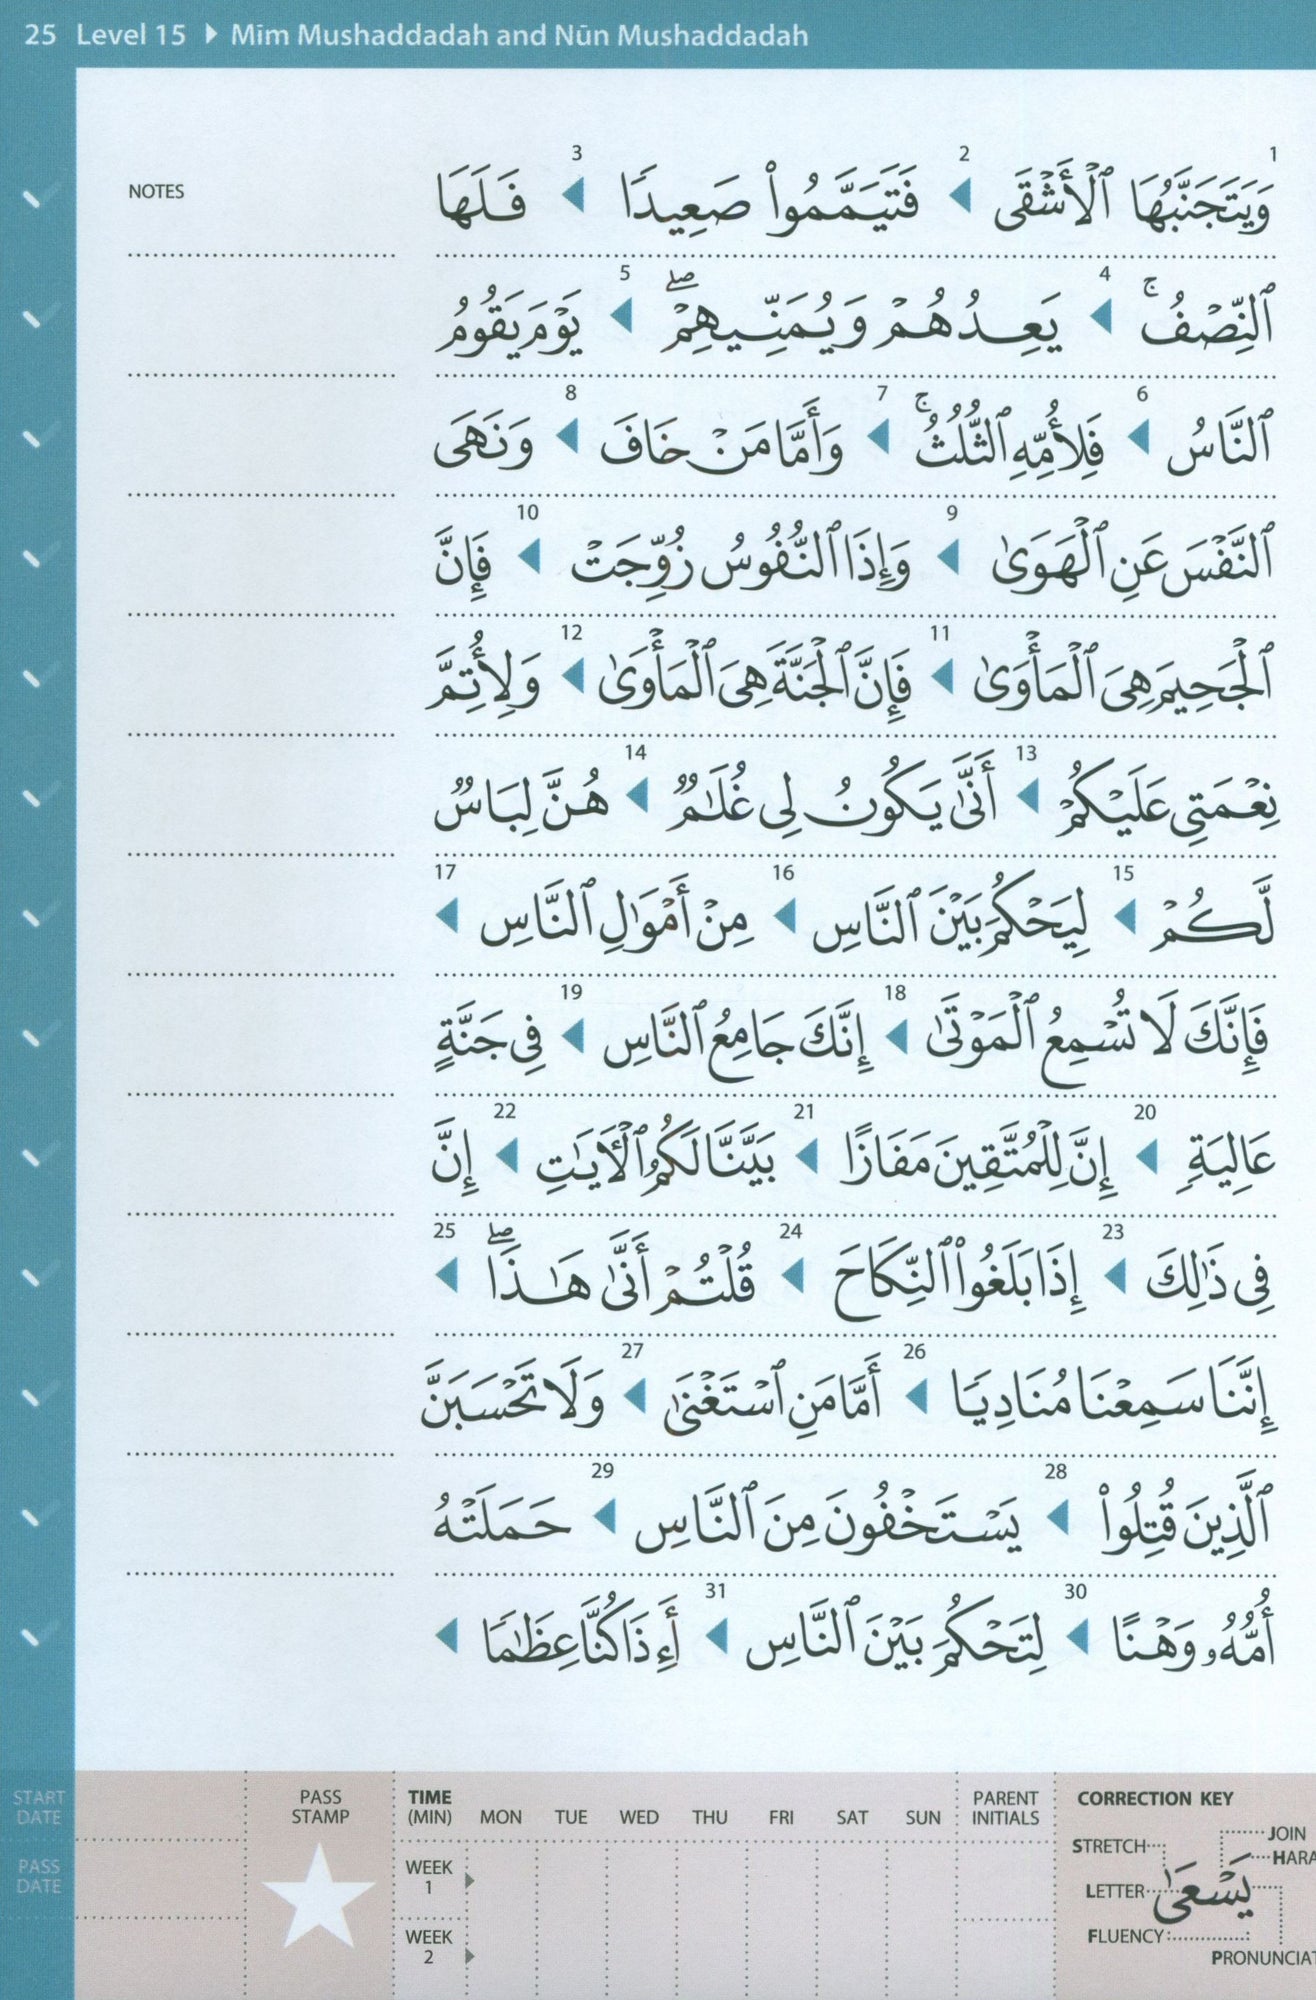 25 Level 15 ▶ Mīm Mushaddadah and Nūn Mushaddadah
NOTES
1 وَيَتَجَنَّبُهَا ٱلْأَشْقَى ◀ 2 فَتَيَمَّمُوا۟ صَعِيدًا ◀ 3 فَلَهَا
ٱلنِّصْفُ ۚ ◀ 4 يَعِدُهُمْ وَيُمَنِّيهِمْ ۖ ◀ 5 يَوْمَ يَقُومُ
ٱلنَّاسُ ◀ 6 فَلِأُمِّهِ ٱلثُّلُثُ ۚ ◀ 7 وَأَمَّا مَنْ خَافَ ◀ 8 وَنَهَى
ٱلنَّفْسَ عَنِ ٱلْهَوَىٰ ◀ 9 وَإِذَا ٱلنُّفُوسُ زُوِّجَتْ ◀ 10 فَإِنَّ
ٱلْجَحِيمَ هِىَ ٱلْمَأْوَىٰ ◀ 11 فَإِنَّ ٱلْجَنَّةَ هِىَ ٱلْمَأْوَىٰ ◀ 12 وَلِأُتِمَّ
نِعْمَتِى عَلَيْكُمْ ◀ 13 أَنَّىٰ يَكُونُ لِى غُلَـٰمٌ ◀ 14 هُنَّ لِبَاسٌ
لَّكُمْ ◀ 15 لِيَحْكُمَ بَيْنَ ٱلنَّاسِ ◀ 16 مِنْ أَمْوَٰلِ ٱلنَّاسِ ◀ 17
فَإِنَّكَ لَا تُسْمِعُ ٱلْمَوْتَىٰ ◀ 18 إِنَّكَ جَامِعُ ٱلنَّاسِ ◀ 19 فِى جَنَّةٍ
عَالِيَةٍ ◀ 20 إِنَّ لِلْمُتَّقِينَ مَفَازًا ◀ 21 بَيَّنَّا لَكُمُ ٱلْـَٔايَـٰتِ ◀ 22 إِنَّ
فِى ذَٰلِكَ ◀ 23 إِذَا بَلَغُوا۟ ٱلنِّكَاحَ ◀ 24 قُلْتُمْ أَنَّىٰ هَـٰذَا ۖ ◀ 25
إِنَّنَا سَمِعْنَا مُنَادِيًا ◀ 26 أَمَّا مَنِ ٱسْتَغْنَىٰ ◀ 27 وَلَا تَحْسَبَنَّ
ٱلَّذِينَ قُتِلُوا۟ ◀ 28 يَسْتَخْفُونَ مِنَ ٱلنَّاسِ ◀ 29 حَمَلَتْهُ
أُمُّهُۥ وَهْنًا ◀ 30 لِتَحْكُمَ بَيْنَ ٱلنَّاسِ ◀ 31 أَءِذَا كُنَّا عِظَـٰمًا ◀
START DATE
PASS DATE
PASS STAMP
TIME (MIN) MON TUE WED THU FRI SAT SUN
WEEK 1
WEEK 2
PARENT INITIALS
CORRECTION KEY
STRETCH
JOIN
HARA
LETTER
يَسْعَىٰ
FLUENCY
PRONUNCIAT